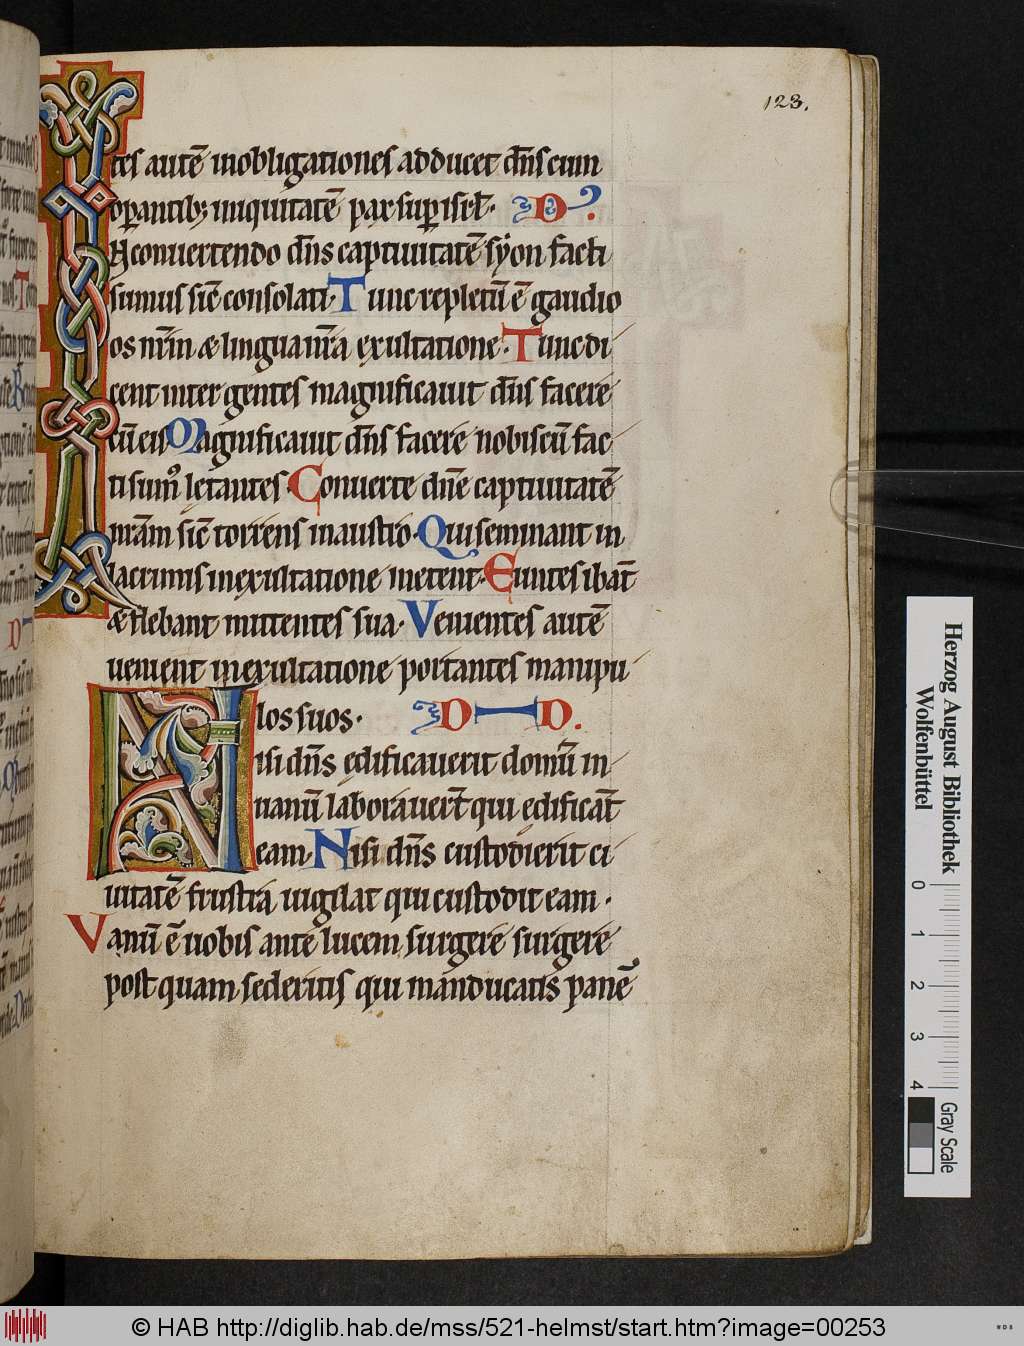 123.
tes autē inobligationes adducet dn̄s cum
op̄antib; iniquitatē pax sup̄ isrl̄.
N conuertendo dn̄s captiuitatē syon facti
sumus sic̄ consolati. Tunc repletū ē gaudio
os nr̄m & lingua nr̄a exultatione. Tunc di
cent inter gentes magnificauit dn̄s facere
cū eis Magnificauit dn̄s facere nobiscū fac
ti sum᷒ letantes. Conuerte dn̄e captiuitatē
nr̄am sic̄ torrens in austro. Qui seminant in
lacrimis in exultatione metent. Euntes ibant̄
& flebant mittentes sua. Venientes autē
uenient in exultatione portantes manipu
los suos. D D.
N isi dn̄s edificauerit domū in
uanū laborauer̄t qui edificāt
eam. Nisi dn̄s custodierit ci
uitatē frustra uigilat qui custodit eam.
Vanū ē uobis ante lucem surgere surgere
post quam sederitis qui manducatis panē
Herzog August Bibliothek
Wolfenbüttel
0 1 2 3 4
Gray Scale
© HAB http://diglib.hab.de/mss/521-helmst/start.htm?image=00253